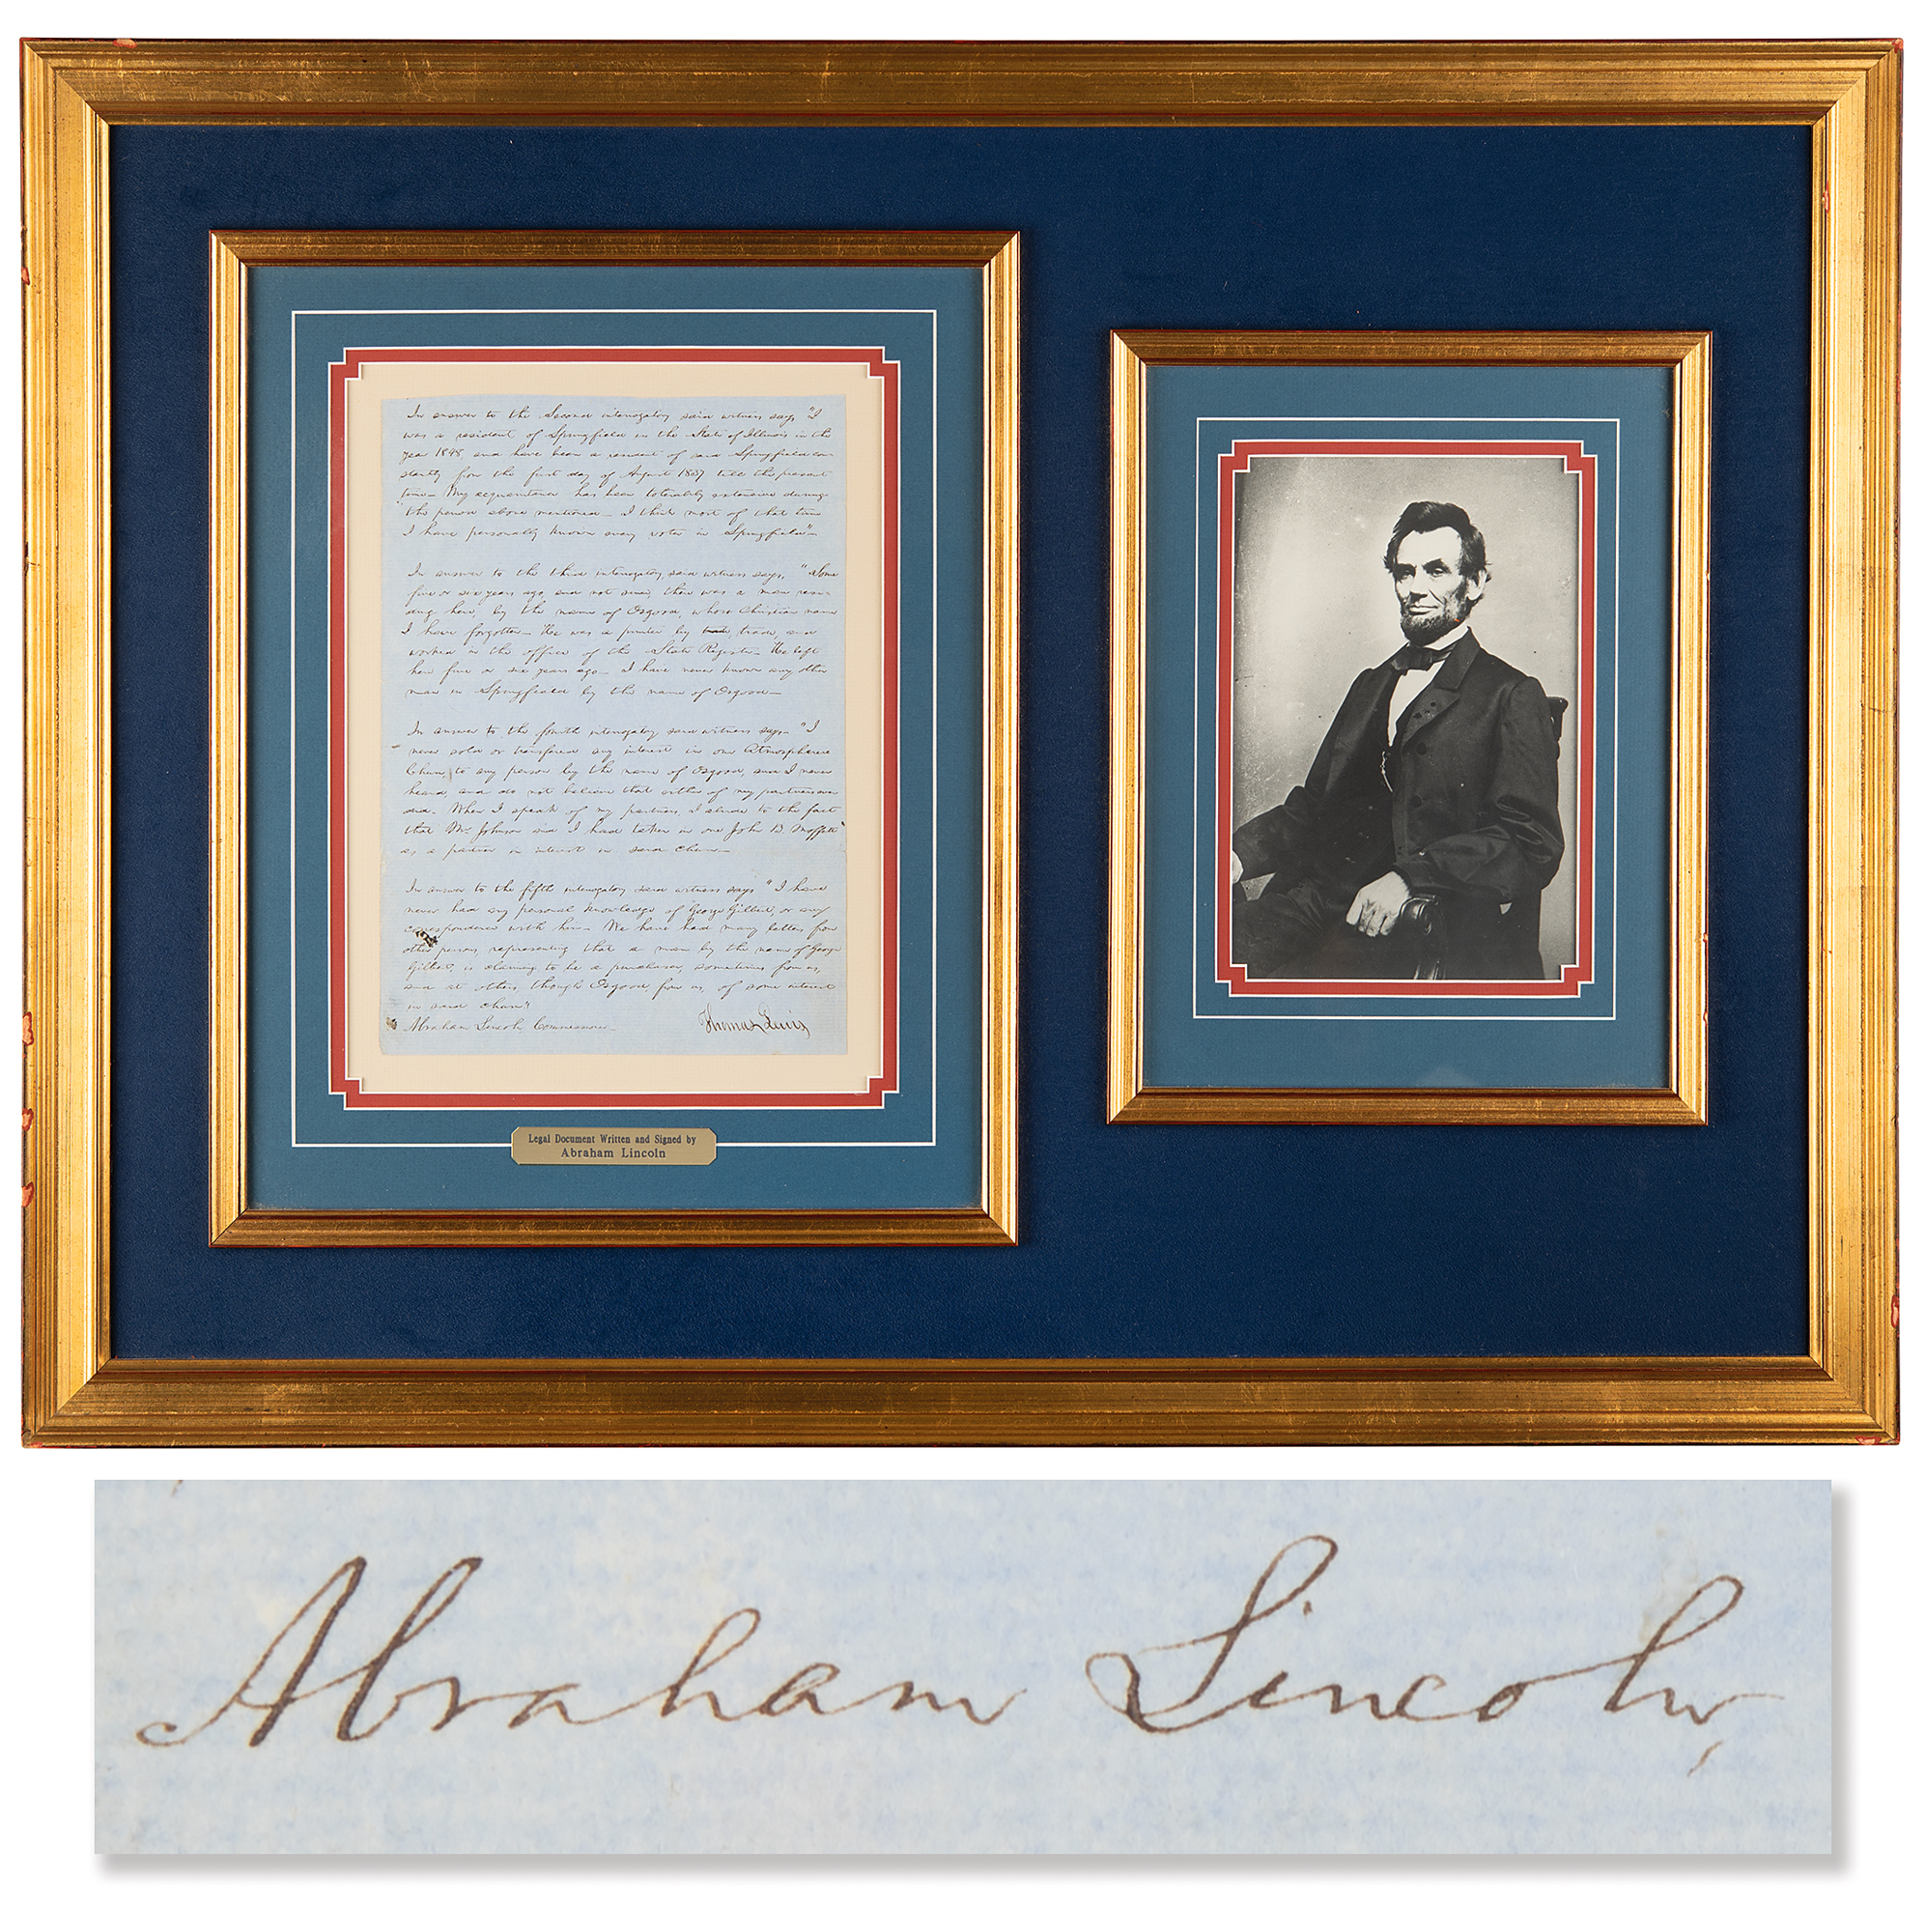 In answer to the Second interrogatory said witness says "I
was a resident of Springfield in the State of Illinois in the
year 1848 and have been a resident of said Springfield con-
stantly from the first day of August 1837 till the present
time— My acquaintance has been tolerably extensive during
the period above mentioned— I think most of that time
I have personally known every voter in Springfield"—
In answer to the third interrogatory said witness says, "Some
five or six years ago, and not since, there was a man resi-
ding here, by the name of Osgood, whose Christian name
I have forgotten— He was a printer by trade, and
worked in the office of the State Register— He left
here five or six years ago— I have never known any other
man in Springfield by the name of Osgood—
In answer to the fourth interrogatory said witness says— "I
never sold or transfered any interest in our Atmospheric
Churn, to any person by the name of Osgood, and I never
heard, and do not believe that either of my partners ever
did. When I speak of my partners, I allude to the fact
that Mr. Johnson and I had taken in one John B. Moffett
as a partner in interest in said churn—
In answer to the fifth interrogatory said witness says "I have
never had any personal knowledge of George Gilbert, or any
correspondence with him— We have had many letters from
other persons, representing that a man by the name of George
Gilbert, is claiming to be a purchaser, sometimes from us,
and at others, through Osgood, from us, of some interest
in said churn"
Abraham Lincoln, Commissioner— Thomas Lewis
Legal Document Written and Signed by
Abraham Lincoln
Abraham Lincoln,